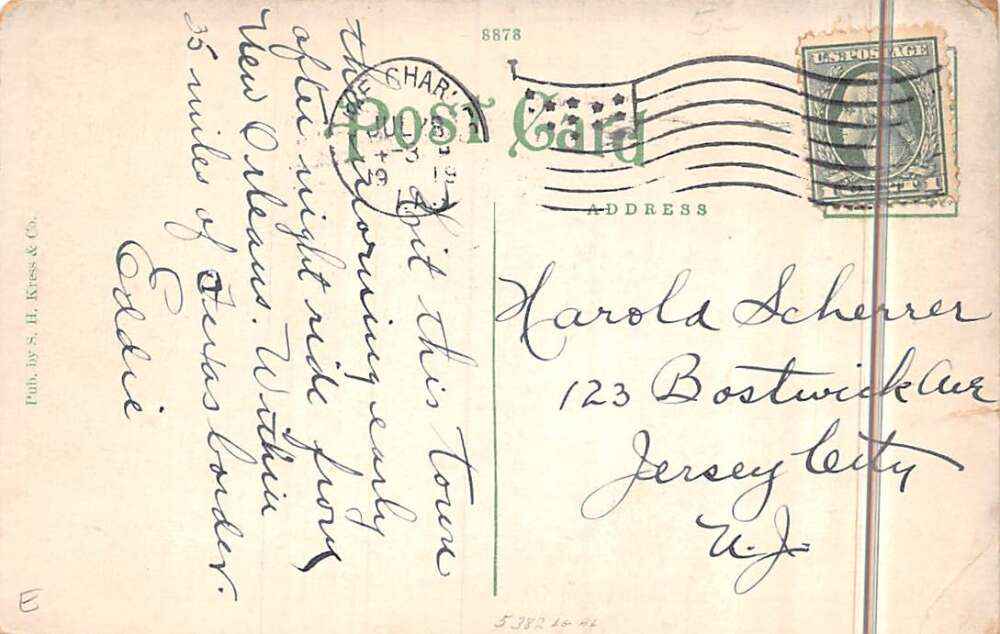 8878
Post Card
ADDRESS
U.S. POSTAGE
1 CENT 1
LAKE CHAR
JUL
Hit this town
this morning early
after night ride from
New Orleans. Within
35 miles of Texas border.
Eddie
Harold Scherrer
123 Bostwick Ave
Jersey City
N.J.
Pub. by S. H. Kress & Co.
E
5382